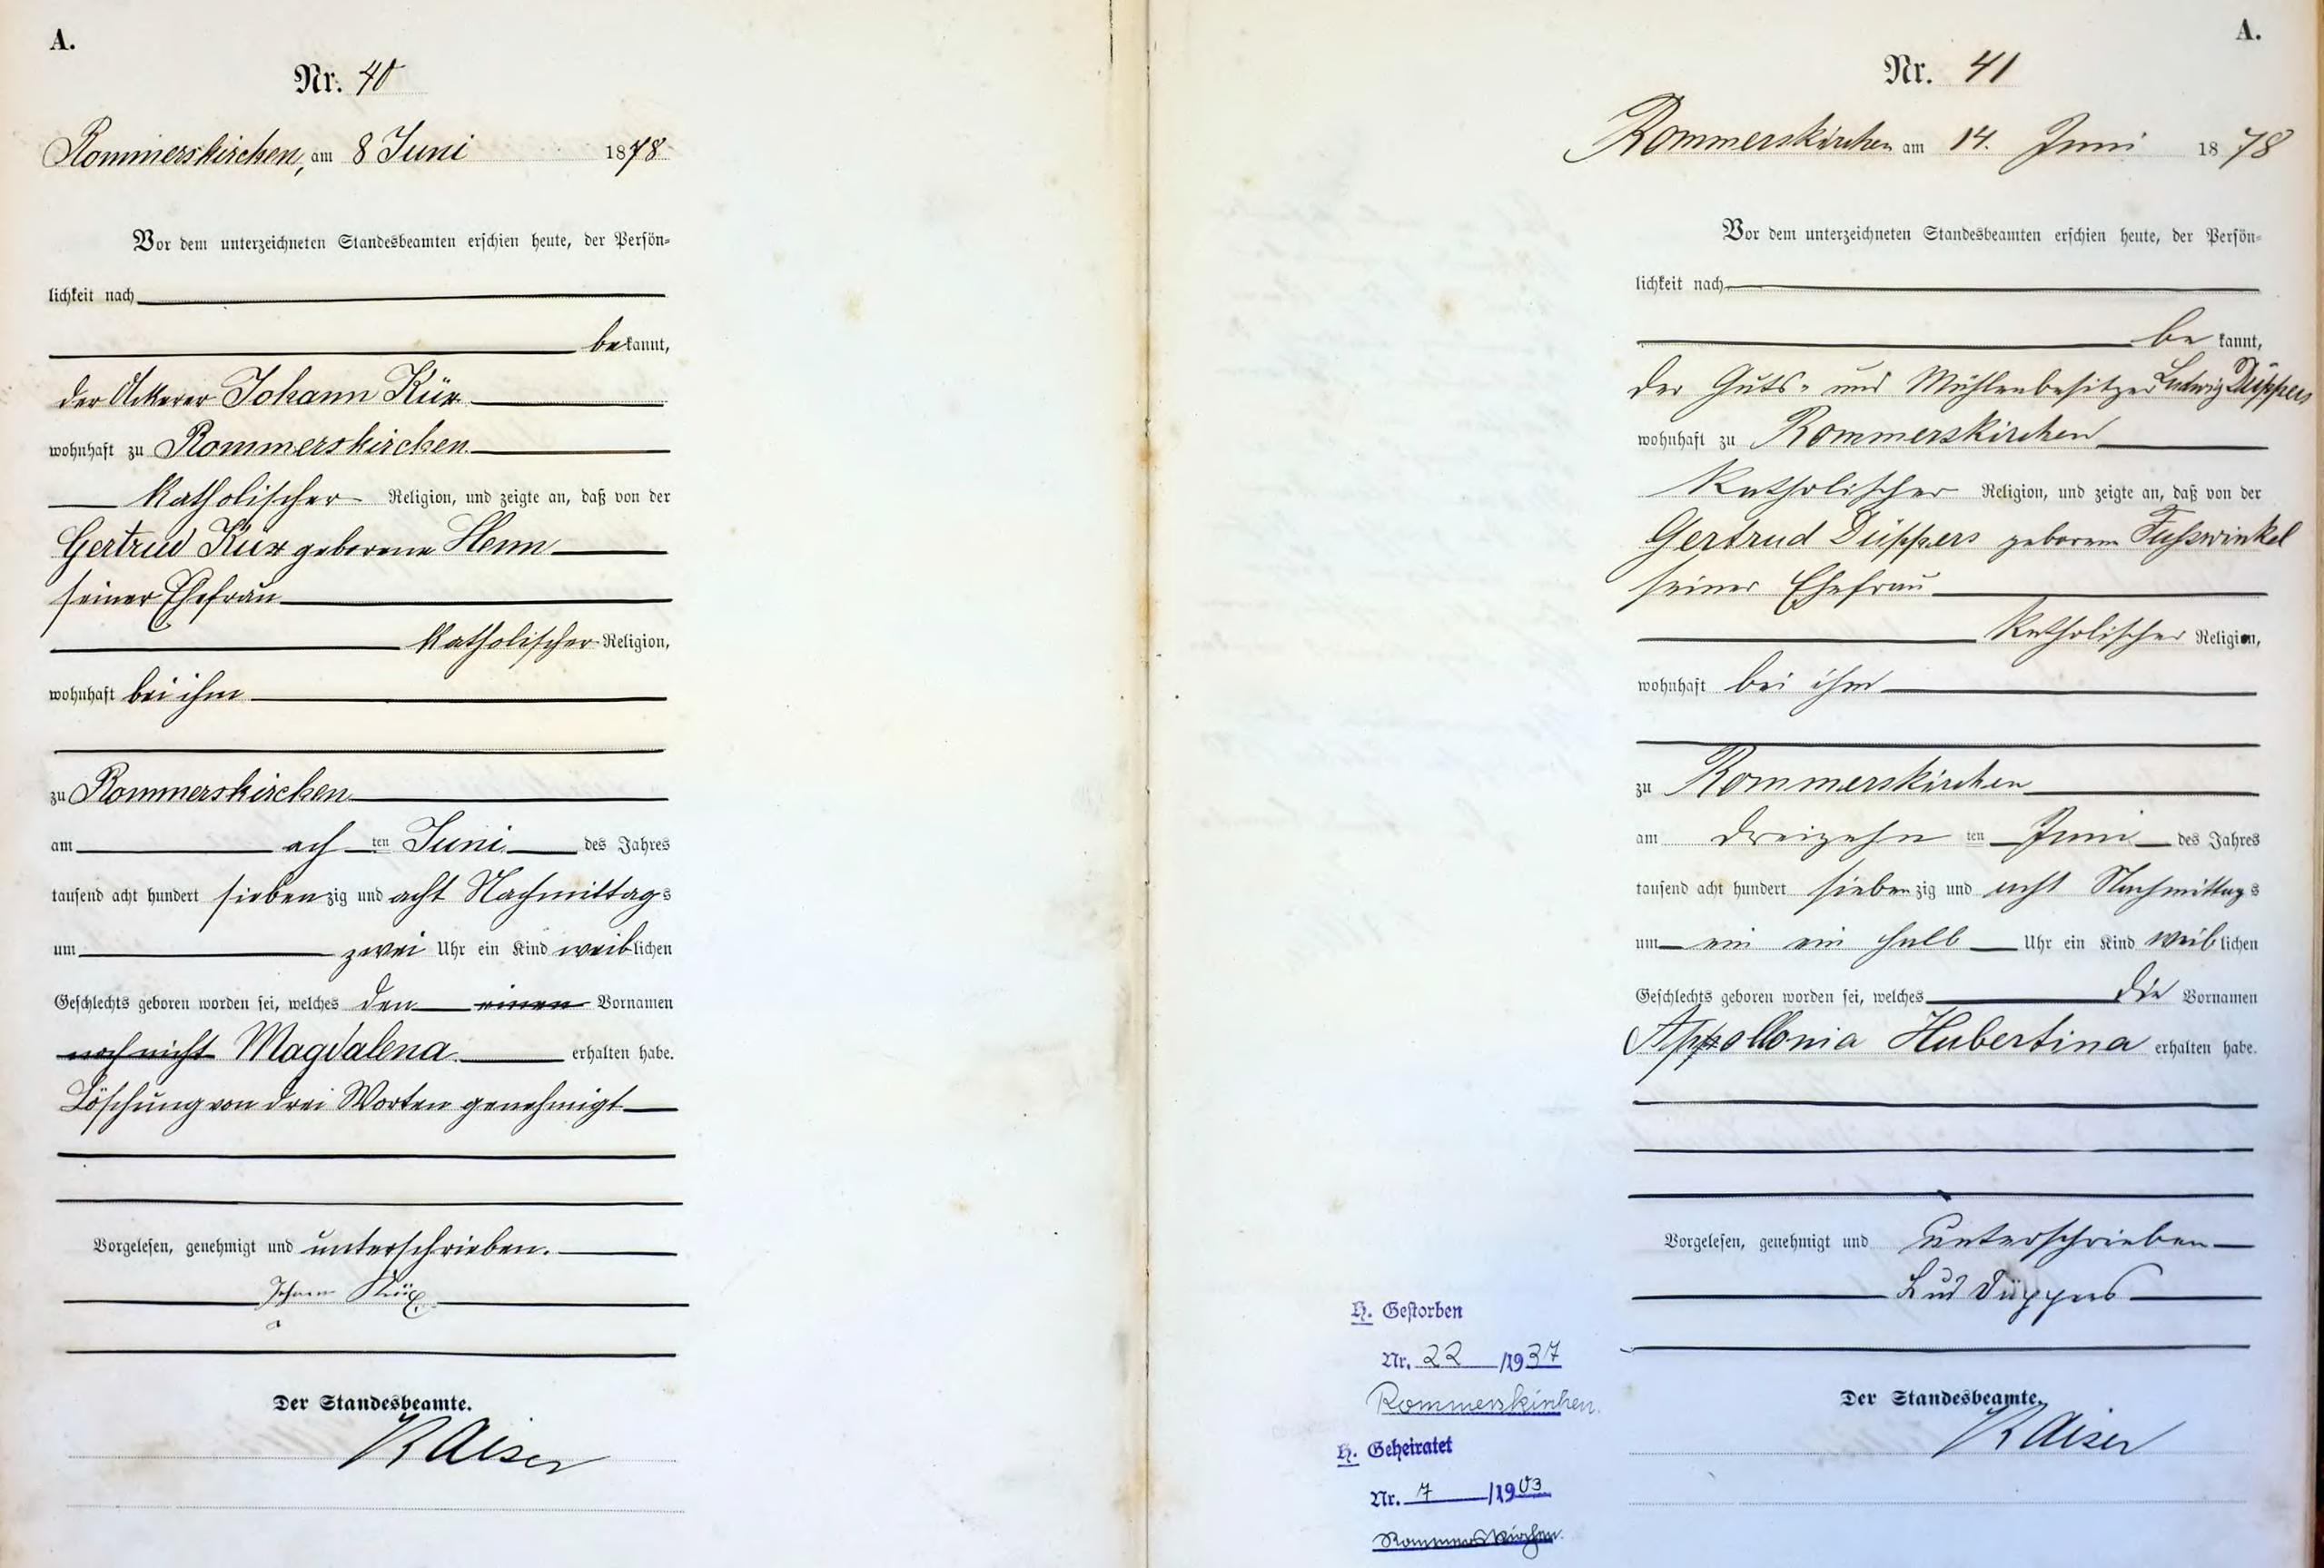 A.
Nr. 40
Rommerskirchen, am 8 Juni 1878
Vor dem unterzeichneten Standesbeamten erschien heute, der Persön-
lichkeit nach
bekannt,
der Ackerer Johann Küx
wohnhaft zu Rommerskirchen
katholischer Religion, und zeigte an, daß von der
Gertrud Küx geborene Henn
seiner Ehefrau
katholischer Religion,
wohnhaft bei ihm
zu Rommerskirchen
am ach ten Juni des Jahres
tausend acht hundert siebenzig und acht Nachmittags
um zwei Uhr ein Kind weiblichen
Geschlechts geboren worden sei, welches den einen Vornamen
noch nicht Magdalena erhalten habe.
Löschung von drei Worten genehmigt
Vorgelesen, genehmigt und unterschrieben.
Johann Küx
Der Standesbeamte.
Kaiser
A.
Nr. 41
Rommerskirchen am 14. Juni 1878
Vor dem unterzeichneten Standesbeamten erschien heute, der Persön-
lichkeit nach
bekannt,
der Guts- und Mühlenbesitzer Ludwig Düppers
wohnhaft zu Rommerskirchen
katholischer Religion, und zeigte an, daß von der
Gertrud Düppers geborene Fußwinkel
seiner Ehefrau
katholischer Religion,
wohnhaft bei ihm
zu Rommerskirchen
am dreizehn ten Juni des Jahres
tausend acht hundert siebenzig und acht Nachmittags
um ein ein halb Uhr ein Kind weiblichen
Geschlechts geboren worden sei, welches die Vornamen
Appollonia Hubertina erhalten habe.
Vorgelesen, genehmigt und unterschrieben
Lud Düppers
Der Standesbeamte.
Kaiser
H. Gestorben
Nr. 22 /1937
Rommerskirchen.
H. Geheiratet
Nr. 7 /1903
Rommerskirchen.